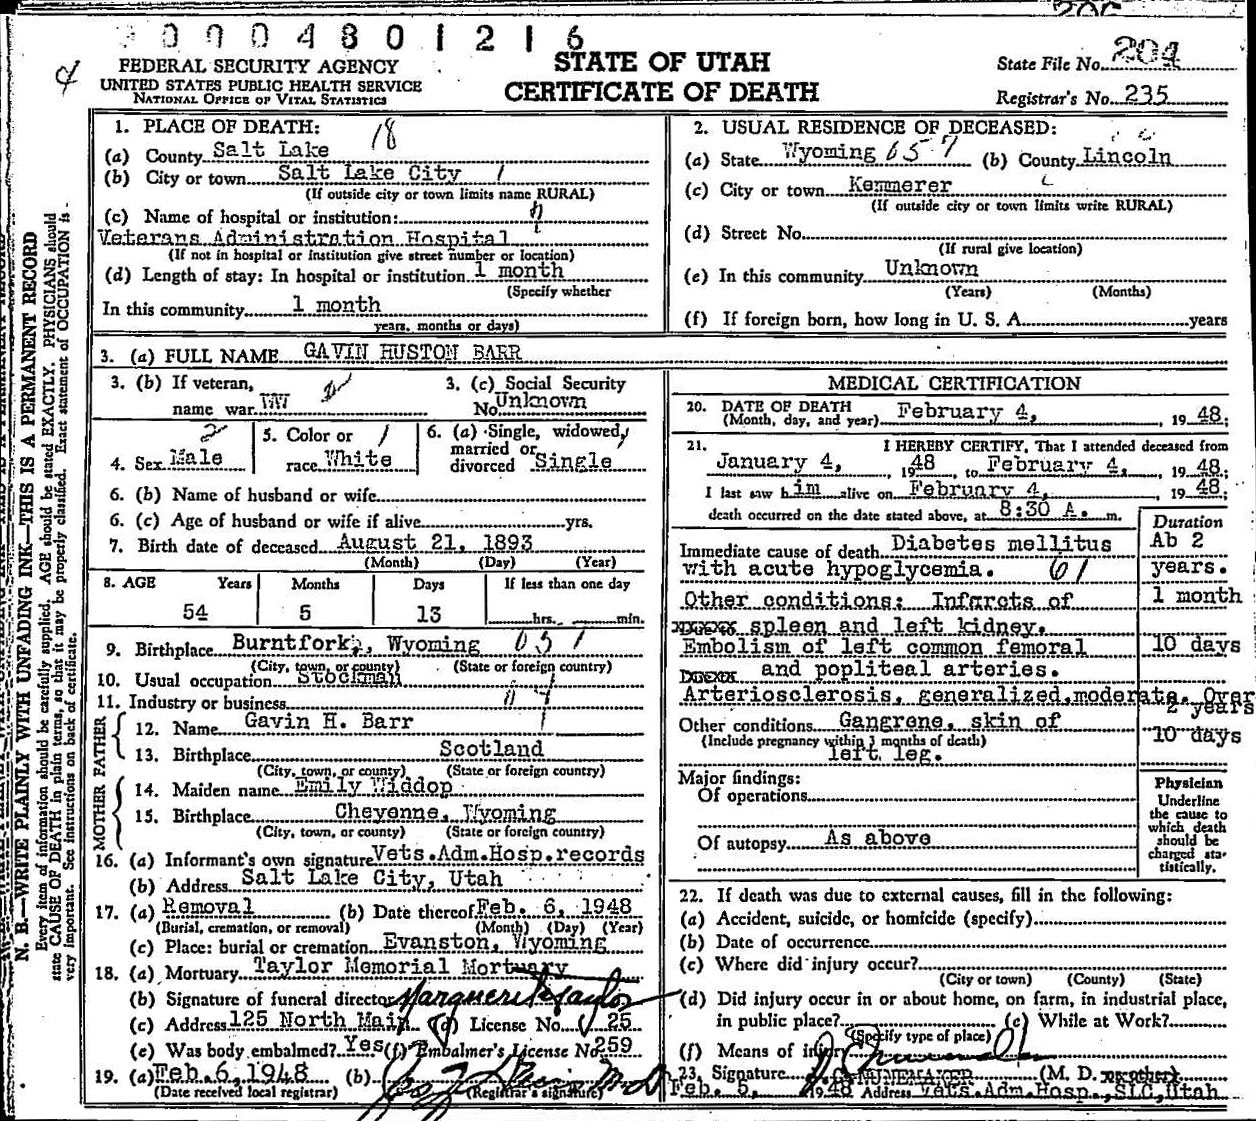 0004801216
FEDERAL SECURITY AGENCY
UNITED STATES PUBLIC HEALTH SERVICE
NATIONAL OFFICE OF VITAL STATISTICS
STATE OF UTAH
CERTIFICATE OF DEATH
State File No. 204
Registrar's No. 235
N. B.—WRITE PLAINLY WITH UNFADING INK—THIS IS A PERMANENT RECORD
Every item of information should be carefully supplied. AGE should be stated EXACTLY. PHYSICIANS should
state CAUSE OF DEATH in plain terms, so that it may be properly classified. Exact statement of OCCUPATION is
very important. See instructions on back of certificate.
1. PLACE OF DEATH: 18
(a) County Salt Lake
(b) City or town Salt Lake City 1
(If outside city or town limits name RURAL)
(c) Name of hospital or institution:
Veterans Administration Hospital
(If not in hospital or institution give street number or location)
(d) Length of stay: In hospital or institution 1 month
(Specify whether
In this community 1 month
years, months or days)
2. USUAL RESIDENCE OF DECEASED:
(a) State Wyoming 657 (b) County Lincoln
(c) City or town Kemmerer
(If outside city or town limits write RURAL)
(d) Street No.
(If rural give location)
(e) In this community Unknown
(Years) (Months)
(f) If foreign born, how long in U. S. A. years
3. (a) FULL NAME GAVIN HUSTON BARR
3. (b) If veteran,
name war WW
3. (c) Social Security
No. Unknown
4. Sex Male 2
5. Color or 1
race White
6. (a) Single, widowed,
married or
divorced Single
6. (b) Name of husband or wife
6. (c) Age of husband or wife if alive yrs.
7. Birth date of deceased August 21, 1893
(Month) (Day) (Year)
8. AGE Years Months Days If less than one day
54 5 13 hrs. min.
9. Birthplace Burntfork, Wyoming 051
(City, town, or county) (State or foreign country)
10. Usual occupation Stockman
11. Industry or business
FATHER
12. Name Gavin H. Barr
13. Birthplace Scotland
(City, town, or county) (State or foreign country)
MOTHER
14. Maiden name Emily Widdop
15. Birthplace Cheyenne, Wyoming
(City, town, or county) (State or foreign country)
16. (a) Informant's own signature Vets.Adm.Hosp.records
(b) Address Salt Lake City, Utah
17. (a) Removal (b) Date thereof Feb. 6, 1948
(Burial, cremation, or removal) (Month) (Day) (Year)
(c) Place: burial or cremation Evanston, Wyoming
18. (a) Mortuary Taylor Memorial Mortuary
(b) Signature of funeral director Marguerite Taylor
(c) Address 125 North Main (d) License No. 25
(e) Was body embalmed? Yes (f) Embalmer's License No. 259
19. (a) Feb.6,1948 (b) M.D.
(Date received local registrar) (Registrar's signature)
MEDICAL CERTIFICATION
20. DATE OF DEATH
(Month, day, and year) February 4, 1948;
21. I HEREBY CERTIFY, That I attended deceased from
January 4, 1948 to February 4, 1948;
I last saw him alive on February 4, 1948;
death occurred on the date stated above, at 8:30 A. m.
Duration
Immediate cause of death Diabetes mellitus Ab 2
with acute hypoglycemia. 61 years.
Other conditions: Infarcts of 1 month
spleen and left kidney.
Embolism of left common femoral 10 days
and popliteal arteries.
Arteriosclerosis, generalized,moderate. Over
2 years
Other conditions Gangrene, skin of 10 days
(Include pregnancy within 3 months of death)
left leg.
Major findings:
Of operations
Of autopsy As above
Physician
Underline
the cause to
which death
should be
charged sta-
tistically.
22. If death was due to external causes, fill in the following:
(a) Accident, suicide, or homicide (specify)
(b) Date of occurrence
(c) Where did injury occur?
(City or town) (County) (State)
(d) Did injury occur in or about home, on farm, in industrial place,
in public place? (e) While at Work?
(Specify type of place)
(f) Means of injury
23. Signature (M. D. or other)
Feb. 5, 1948 Address Vets.Adm.Hosp.,SLC,Utah